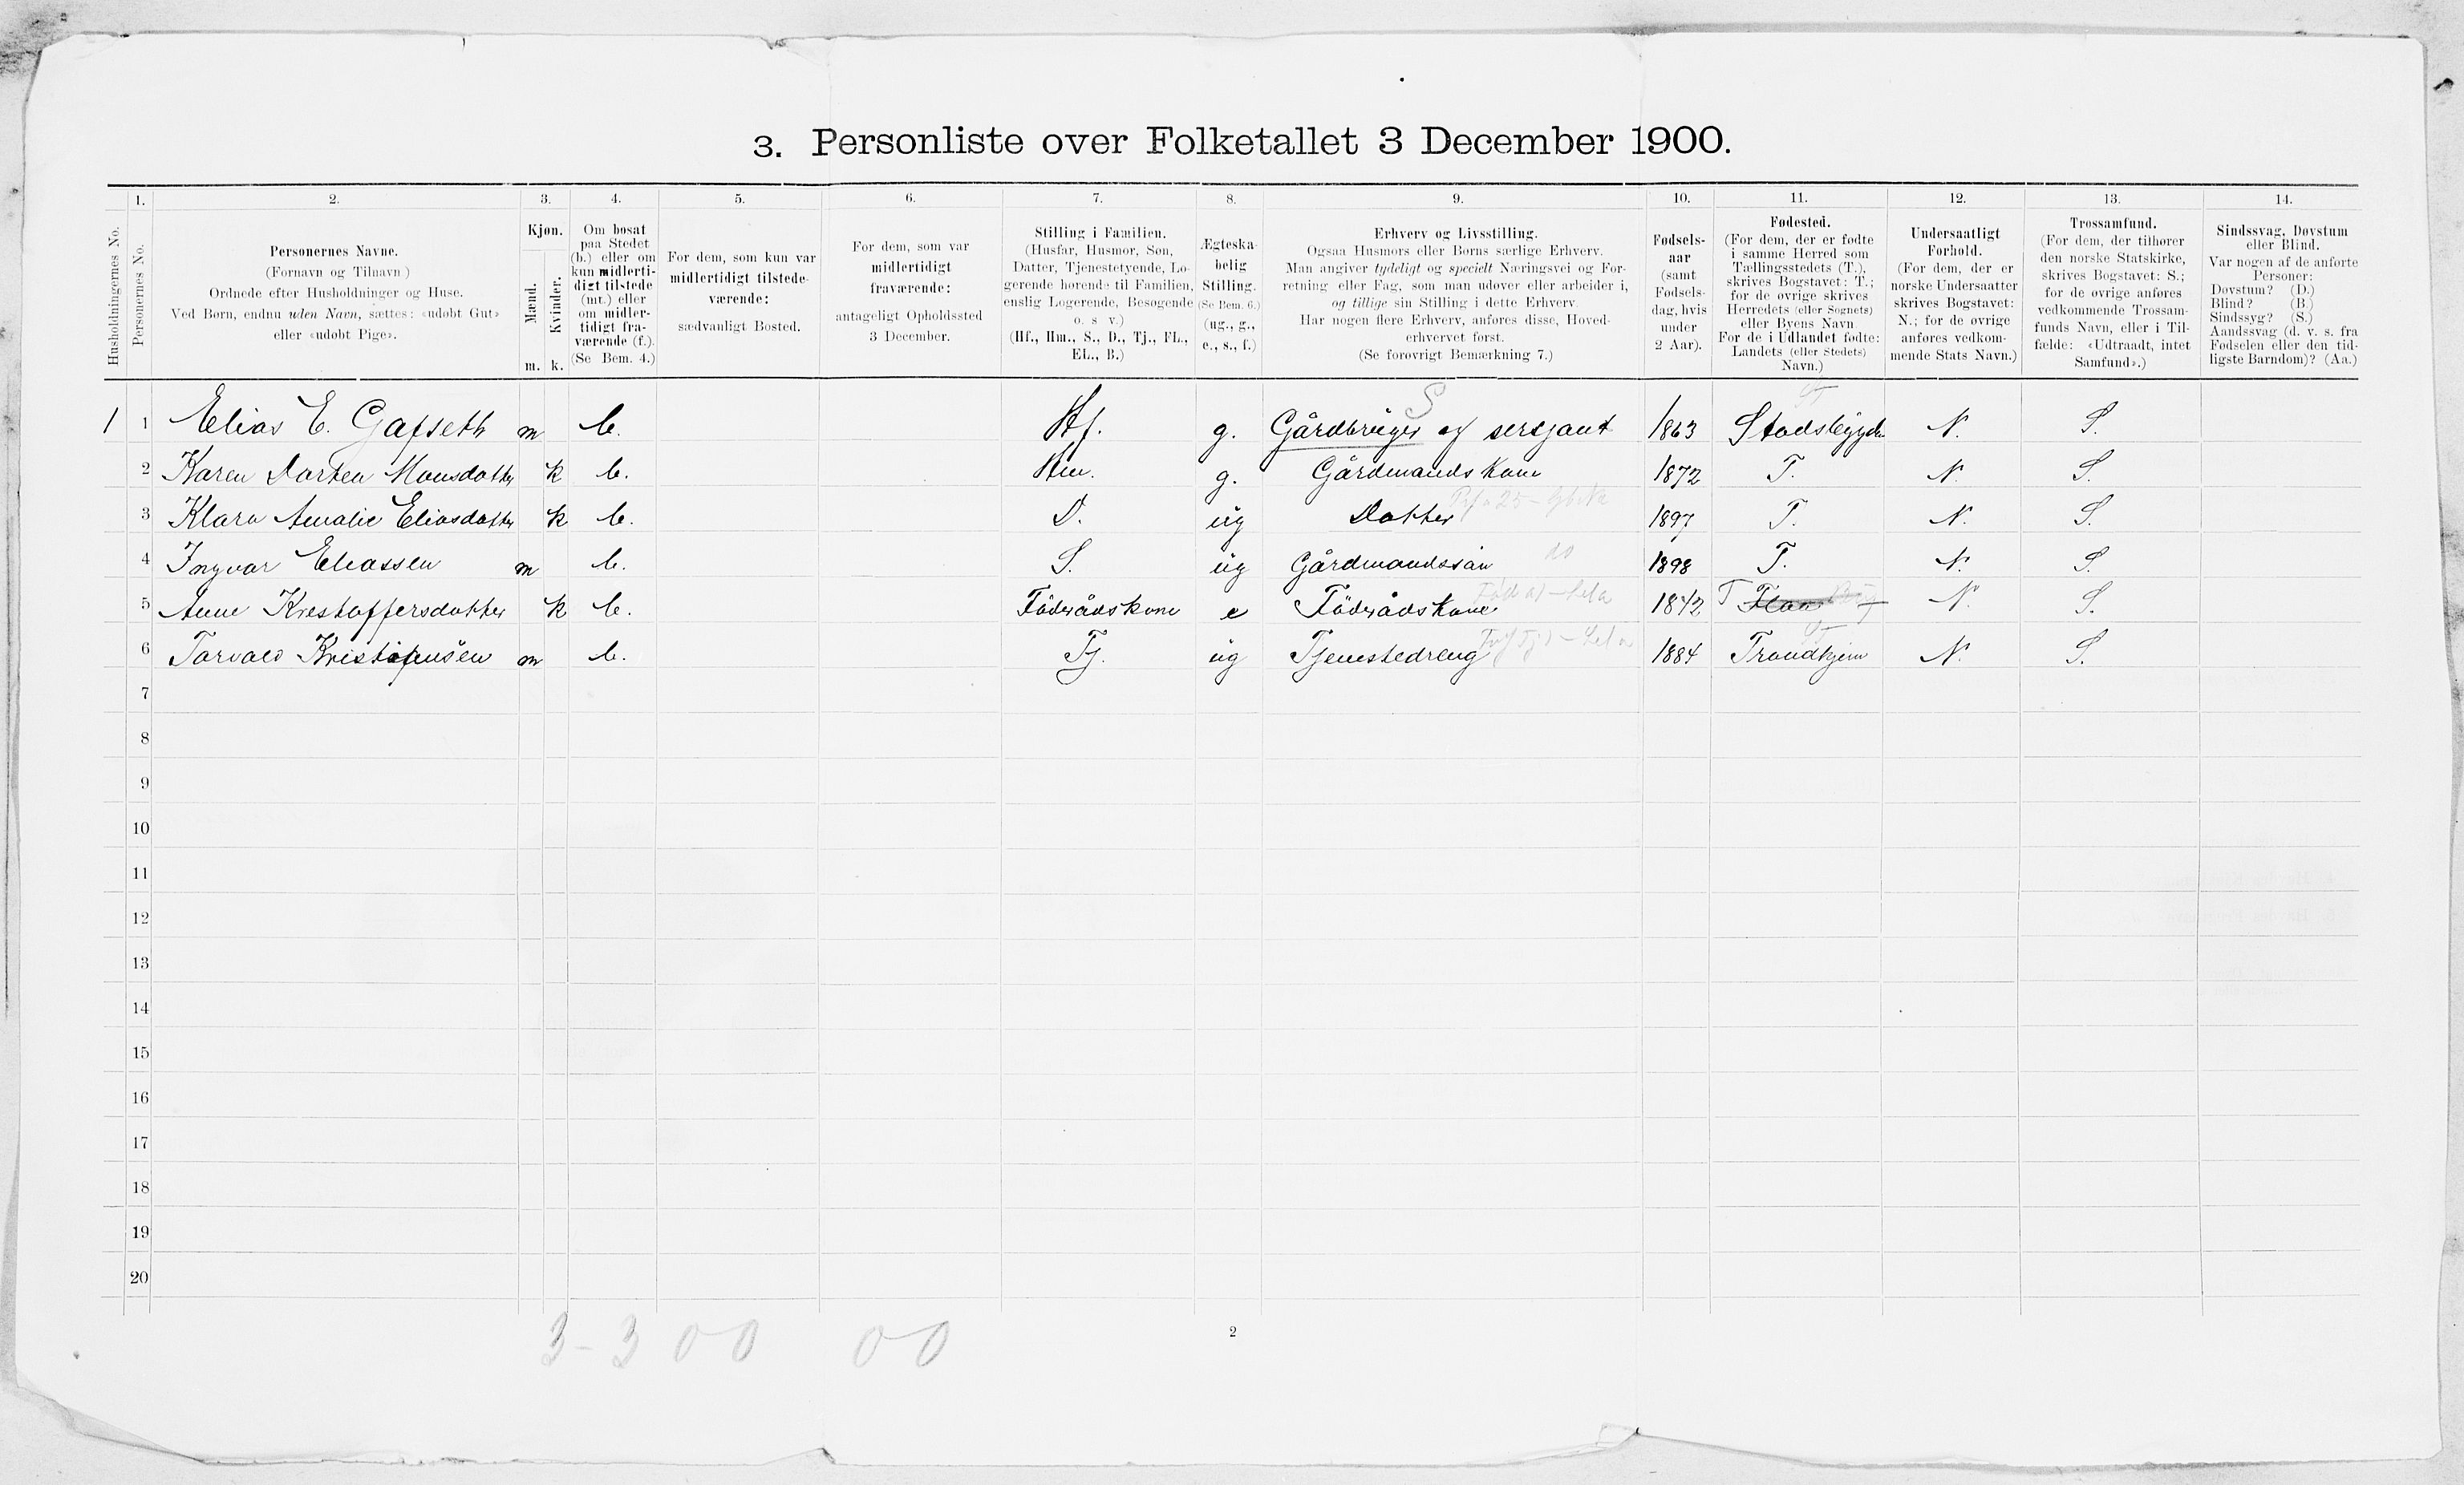 3. Personliste over Folketallet 3 December 1900.
1. 2. 3. 4. 5. 6. 7. 8. 9. 10. 11. 12. 13. 14.
Husholdningernes No.
Personernes No.
Personernes Navne.
(Fornavn og Tilnavn.)
Ordnede efter Husholdninger og Huse.
Ved Børn, endnu uden Navn, sættes: «udøbt Gut»
eller «udøbt Pige».
Kjøn.
Mænd.
Kvinder.
m. k.
Om bosat
paa Stedet
(b.) eller om
kun midlerti-
digt tilstede
(mt.) eller
om midler-
tidigt fra-
værende (f.).
(Se Bem. 4.)
For dem, som kun var
midlertidigt tilstede-
værende:
sædvanligt Bosted.
For dem, som var
midlertidigt
fraværende:
antageligt Opholdssted
3 December.
Stilling i Familien.
(Husfar, Husmor, Søn,
Datter, Tjenestetyende, Lo-
gerende hørende til Familien,
enslig Logerende, Besøgende
o. s. v.)
(Hf., Hm., S., D., Tj., FL.,
EL., B.)
Ægteska-
belig
Stilling.
(Se Bem. 6.)
(ug., g.,
e., s., f.)
Erhverv og Livsstilling.
Ogsaa Husmors eller Børns særlige Erhverv.
Man angiver tydeligt og specielt Næringsvei og For-
retning eller Fag, som man udøver eller arbeider i,
og tillige sin Stilling i dette Erhverv.
Har nogen flere Erhverv, anføres disse, Hoved-
erhvervet først.
(Se forøvrigt Bemærkning 7.)
Fødsels-
aar
(samt
Fødsels-
dag, hvis
under
2 Aar).
Fødested.
(For dem, der er fødte
i samme Herred som
Tællingsstedets (T.),
skrives Bogstavet: T.;
for de øvrige skrives
Herredets (eller Sognets)
eller Byens Navn.
For de i Udlandet fødte:
Landets (eller Stedets)
Navn.)
Undersaatligt
Forhold.
(For dem, der er
norske Undersaatter
skrives Bogstavet:
N.; for de øvrige
anføres vedkom-
mende Stats Navn.)
Trossamfund.
(For dem, der tilhører
den norske Statskirke,
skrives Bogstavet: S.;
for de øvrige anføres
vedkommende Trossam-
funds Navn, eller i Til-
fælde: «Udtraadt, intet
Samfund».)
Sindssvag, Døvstum
eller Blind.
Var nogen af de anførte
Personer:
Døvstum? (D.)
Blind? (B.)
Sindssyg? (S.)
Aandssvag (d. v. s. fra
Fødselen eller den tid-
ligste Barndom)? (Aa.)
S T
1 1 Elias E. Gafseth m b. Hf. g. Gårdbruger og sersjant 1863 Stodsbygden N. S.
2 Karen Dorten Monsdotter k b. Hm. g. Gårdmands kone 1872 T. N. S.
3 Klara Amalie Eliasdotter k b. D. ug Dotter 1897 T. N. S.
4 Ingvar Eliassen m b. S. ug Gårdmandssøn do 1898 T. N. S.
5 Anne Krestoffersdotter k b. Föderådskone e Föderådskone 1842 T Flaa N. S.
6 Torvald Kristofensen m b. Tj. ug Tjenestedreng 1884 Trondhjem N. S.
7
8
9
10
11
12
13
14
15
16
17
18
19
20
3-3 0 0 0 0
2